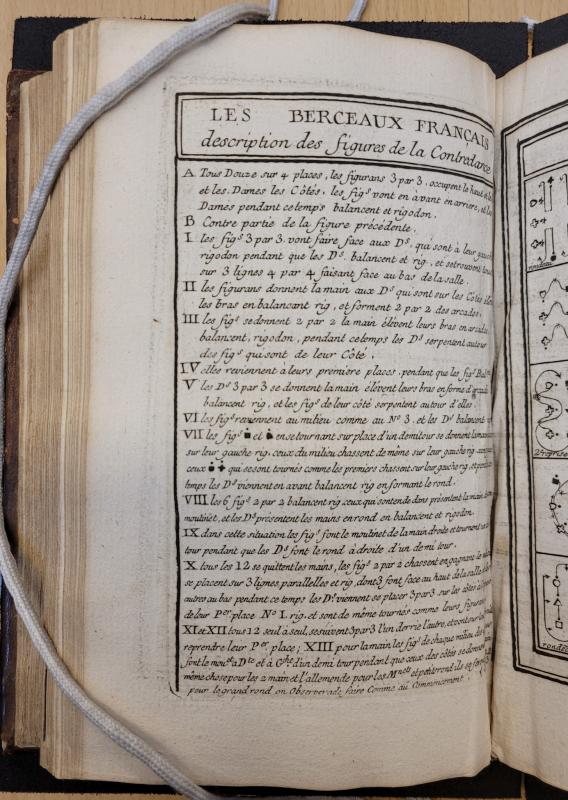 LES BERCEAUX FRANÇAIS
description des figures de la Contredanse
A Tous Douze sur 4 places, les figurans 3 par 3, occupent le haut et le
et les Dames les Côtés, les figˢ vont en avant en arriere, et les
Dames pendant cetemps balencent et rigodon.
B Contre partie de la figure précédente.
I les figˢ 3 par 3. vont faire face aux Dˢ, qui sont à leur gauche
rigodon pendant que les Dˢ. balencent et rig. et setrouvent tous
sur 3 lignes 4 par 4 faisant face au bas de la salle.
II les figurans donnent la main aux Dˢ qui sont sur les Côtés
les bras en balancant rig, et forment 2 par 2 des arcades.
III les figˢ sedonnent 2 par 2 la main élévent leurs bras en arcades
balancent, rigodon, pendant cetemps les Dˢ serpentent autour
des figˢ qui sont de leur Côté.
IV elles reviennent à leurs premiere places. pendant que les figˢ Bal
V les Dˢ 3 par 3 se donnent la main élévent leurs bras en forme d'arcade
balancent rig, et les figˢ de leur côté serpentent autour d'elles
VI les figˢ reviennent au milieu comme au Nº 3. et les Dˢ balancent
VII les figˢ ■ et ense tournant sur place d'un demi tour se donnent la main
sur leur gauche rig. ceux du milieu chassent de même sur leur gauche rig.
ceux qui se sont tournés comme les premiers chassent sur leur gauche rig. et pendant
temps les Dˢ viennent en avant balancent rig en formant le rond.
VIII les 6 figˢ 2 par 2 balancent rig ceux qui sont en de dans présentent la main
moulinet, et les Dˢ présentent les mains en rond en balancent et rigodon.
IX dans cette situation les figˢ font le moulinet de la main droite et tournent un
tour pendant que les Dˢ font le rond à droite d'un demi tour.
X tous les 12 se quittent les mains, les figˢ 2 par 2 chassent en gagnant le
se placent sur 3 lignes parallelles et rig, dont 3 font face au haut de la salle,
autres au bas pendant ce temps les Dˢ. viennent se placer 3 par 3 sur les côtés
de leur Pᵉʳ. place Nº I. rig. et sont de même tournés comme leurs figurans
XI et XII tous 12 seul à seul, se suivent 3 par 3 l'un derrie l'autre, et vont sur
reprendre leur Pᵉʳ. place; XIII pour la main les figˢ de chaque milieu
font le moulᵗ à Dᵗᵉ et à Gᶜʰᵉ d'un demi tour pendant que ceux des côtés se donnent
même chose pour les 2 main et l'allemende pour les Mⁿᵉᵗˢ et petit rond ils se
pour le grand rond on Observerade faire Comme au Commencement.